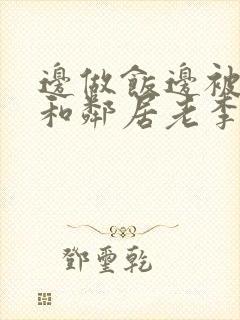 邊做飯邊被
和鄰居老李
鄧璽乾